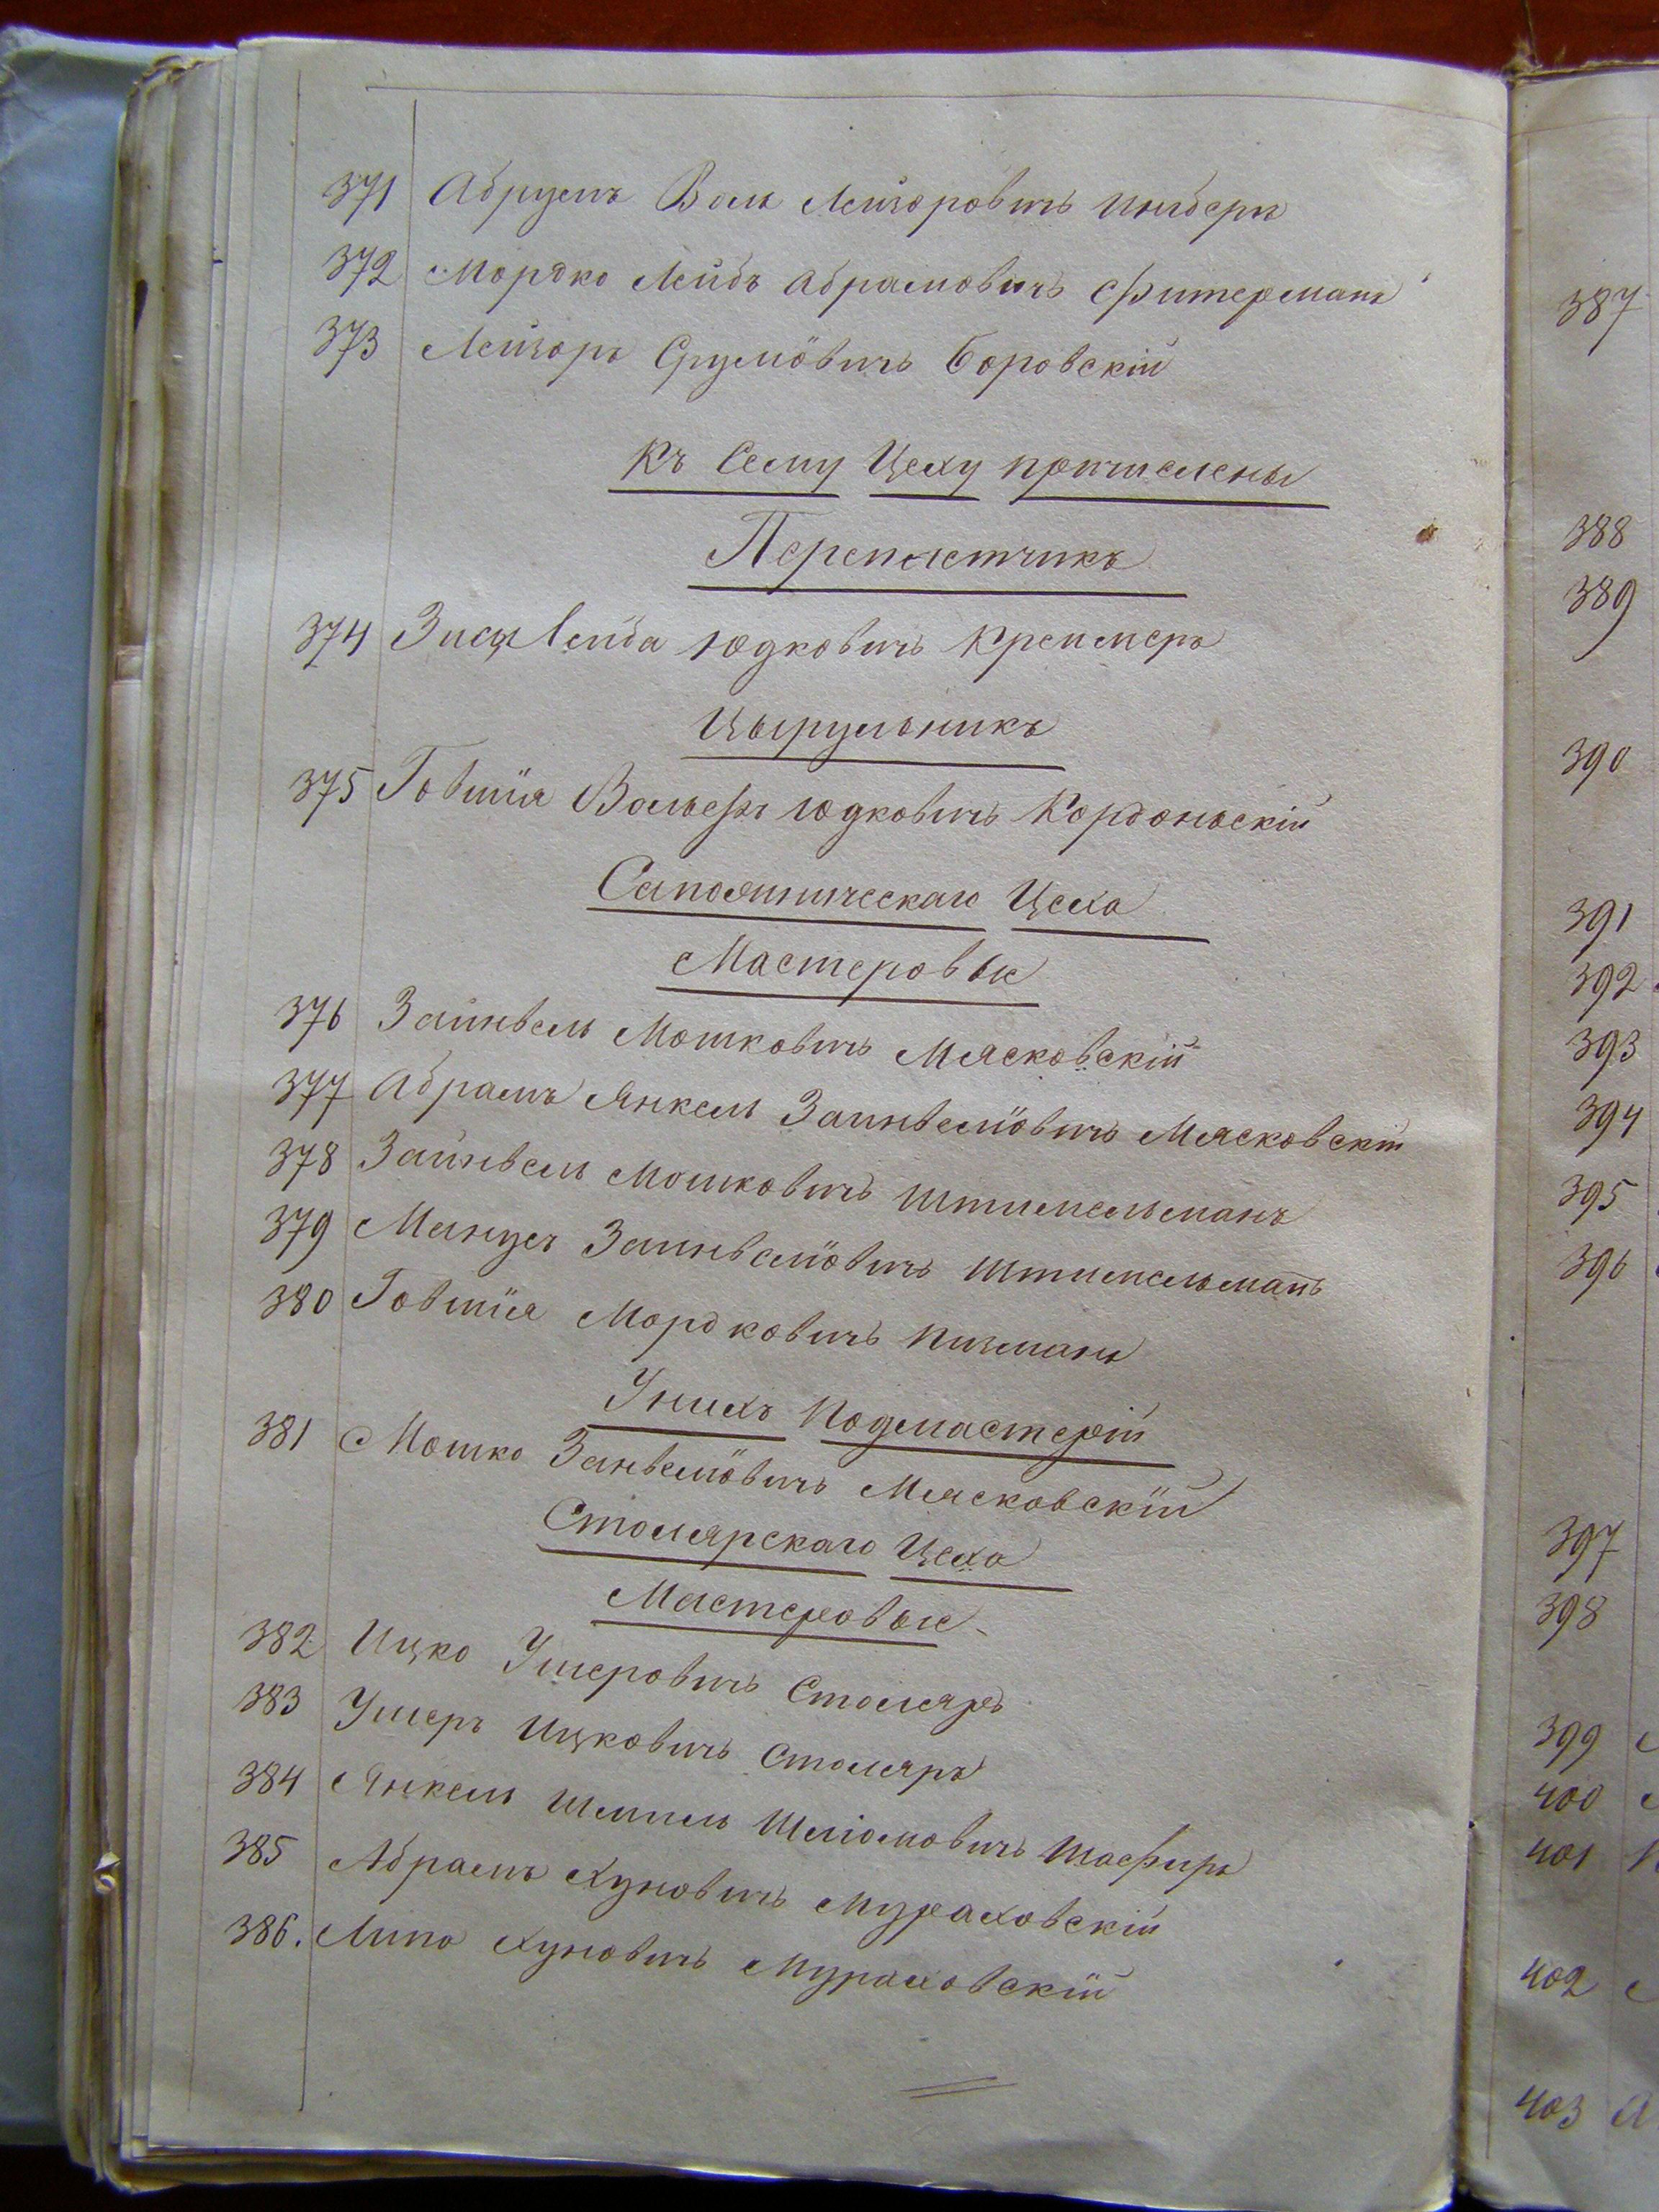 371 Абрумъ Волъ Лейзоровичъ Инбберъ
372 Мордко Лейбъ Абрамовичъ Фитерманъ
373 Лейзоръ Срулiовичъ Боровскій
Къ Сему Цеху причислены
Переплетчикъ
374 Зися Лейба Юдковичъ Кремеръ
Цырульникъ
375 Говшія Вольфъ Юдковичъ Кордоньскій
Сапожническаго Цеха
Мастеровые
376 Зайнвель Мошковичъ Мясковскій
377 Абрамъ Янкель Заинвеліовичъ Мясковскій
378 Зайнвель Мошковичъ Штимельманъ
379 Манусъ Заинвеліовичъ Штимельманъ
380 Говшія Мордковичъ Пизманъ
У нихъ Подмастерій
381 Мошко Занвеліовичъ Мясковскій
Столярскаго Цеха
Мастеровые
382 Ицко Ушеровичъ Столяръ
383 Ушеръ Ицковичъ Столяръ
384 Янкель Шмиль Шліомовичъ Шафиръ
385 Абрамъ Хуновичъ Мураховскій
386. Липа Хуновичъ Мураховскій
387
388
389
390
391
392
393
394
395
396
397
398
399
400
401
402
403